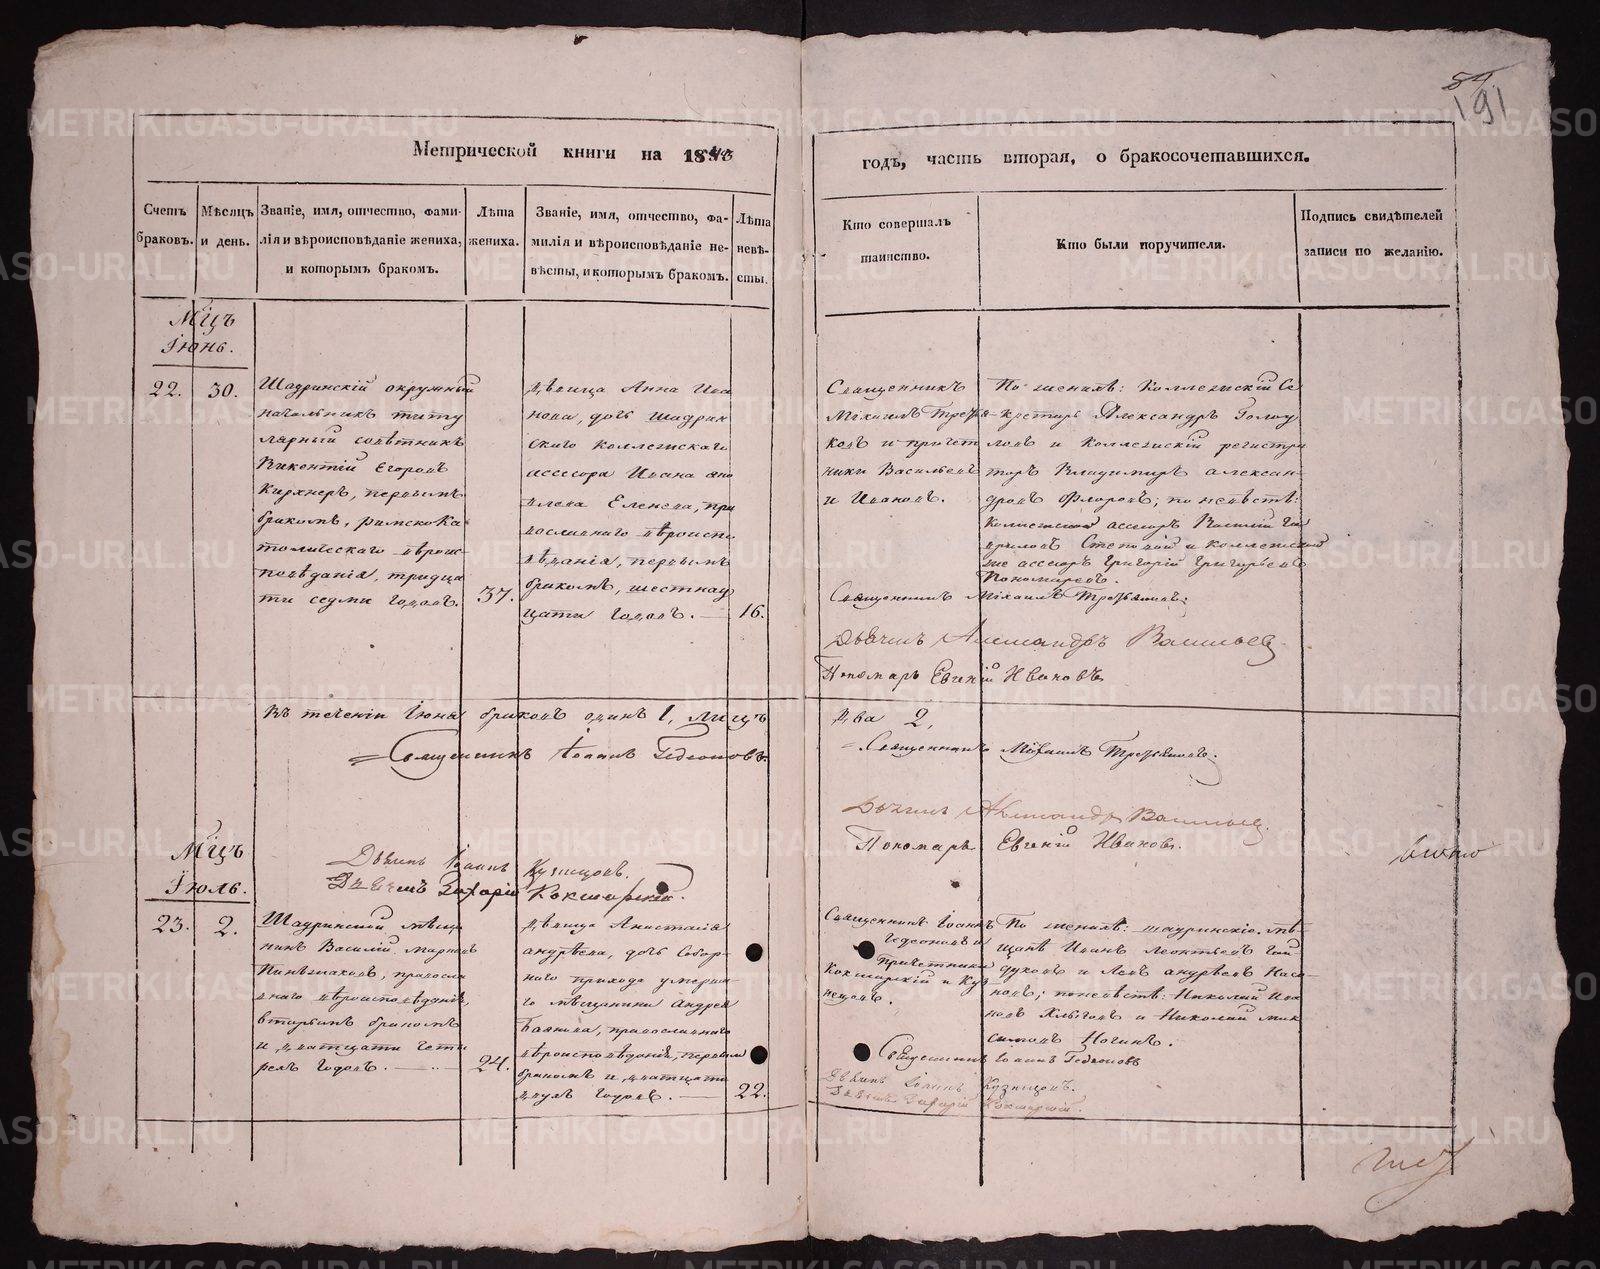 54
191
Метрической книги на 1843
годъ, часть вторая, о бракосочетавшихся.
Счетъ браковъ.
Мѣсяцъ и день.
Званіе, имя, отчество, фами-
лія и вѣроисповѣданіе жениха,
и которымъ бракомъ.
Лѣта
жениха.
Званіе, имя, отчество, фа-
милія и вѣроисповѣданіе не-
вѣсты, и которымъ бракомъ.
Лѣта
невѣ-
сты.
Кто совершалъ
таинство.
Кто были поручители.
Подпись свидѣтелей
записи по желанію.
Мцъ
Іюнь.
22.
30.
Шадринскій окружный
начальникъ титу
лярный совѣтникъ
Викентій Егоровъ
Кирхнеръ, первымъ
бракомъ, римскока
толическаго вѣроис
повѣданія, тридца
ти седми годовъ.
37.
дѣвица Анна Ива
нова, дочь шадрин
скаго коллежскаго
ассесора Ивана
Еленева, пра
вославнаго вѣроиспо
вѣданія, первымъ
бракомъ, шестнад
цати годовъ.
16.
Священникъ
Михаилъ
и причет
ники Васильевъ
и Ивановъ.
По женихѣ: Коллежскій Се
кретарь Александръ
и Коллежскій регистра
торъ Владимиръ алексан-
дровъ Флоровъ; по невѣстѣ:
Коллежской ассесоръ Василій
и коллежской
ассесоръ Григорій Григорьевъ
Пономаревъ.
Священникъ Михаилъ
Дьячекъ Александръ Васильевъ
Пономарь Евгеній Ивановъ
Въ теченіи Іюня браковъ одинъ 1, лицъ
два 2,
Священникъ Іоаннъ Гедеоновъ.
Священникъ Михаилъ
Дьячекъ Александръ Васильевъ.
Пономарь Евгеній Ивановъ.
Мцъ
Іюль.
Іоаннъ Кузнецовъ.
Захарій Кокшарскій.
23.
2.
Шадринскій мѣща
нинъ Василій марковъ
правосла
внаго вѣроисповѣданія,
вторымъ бракомъ
и двадцати четы
рехъ годовъ.
24.
дѣвица Анастасія
андрѣева, дочь Собор-
наго прихода умерша
го мѣщанина Андрея
православнаго
вѣроисповѣданія, первымъ
бракомъ и двадцати
двухъ годовъ.
22.
Священникъ Іоаннъ
Гедеоновъ и
Причетники
Кокшарскій и Куз
нецовъ.
По женихѣ: шадринскіе мѣ
щане Иванъ Леонтьевъ
и Левъ андрѣевъ
по невѣстѣ: Николай Ива
новъ и Николай мак
симовъ Ногинъ.
Священникъ Іоаннъ Гедеоновъ
Іоаннъ Кузнецовъ.
Захарій Кокшарскій.
METRIKI.GASO-URAL.RU